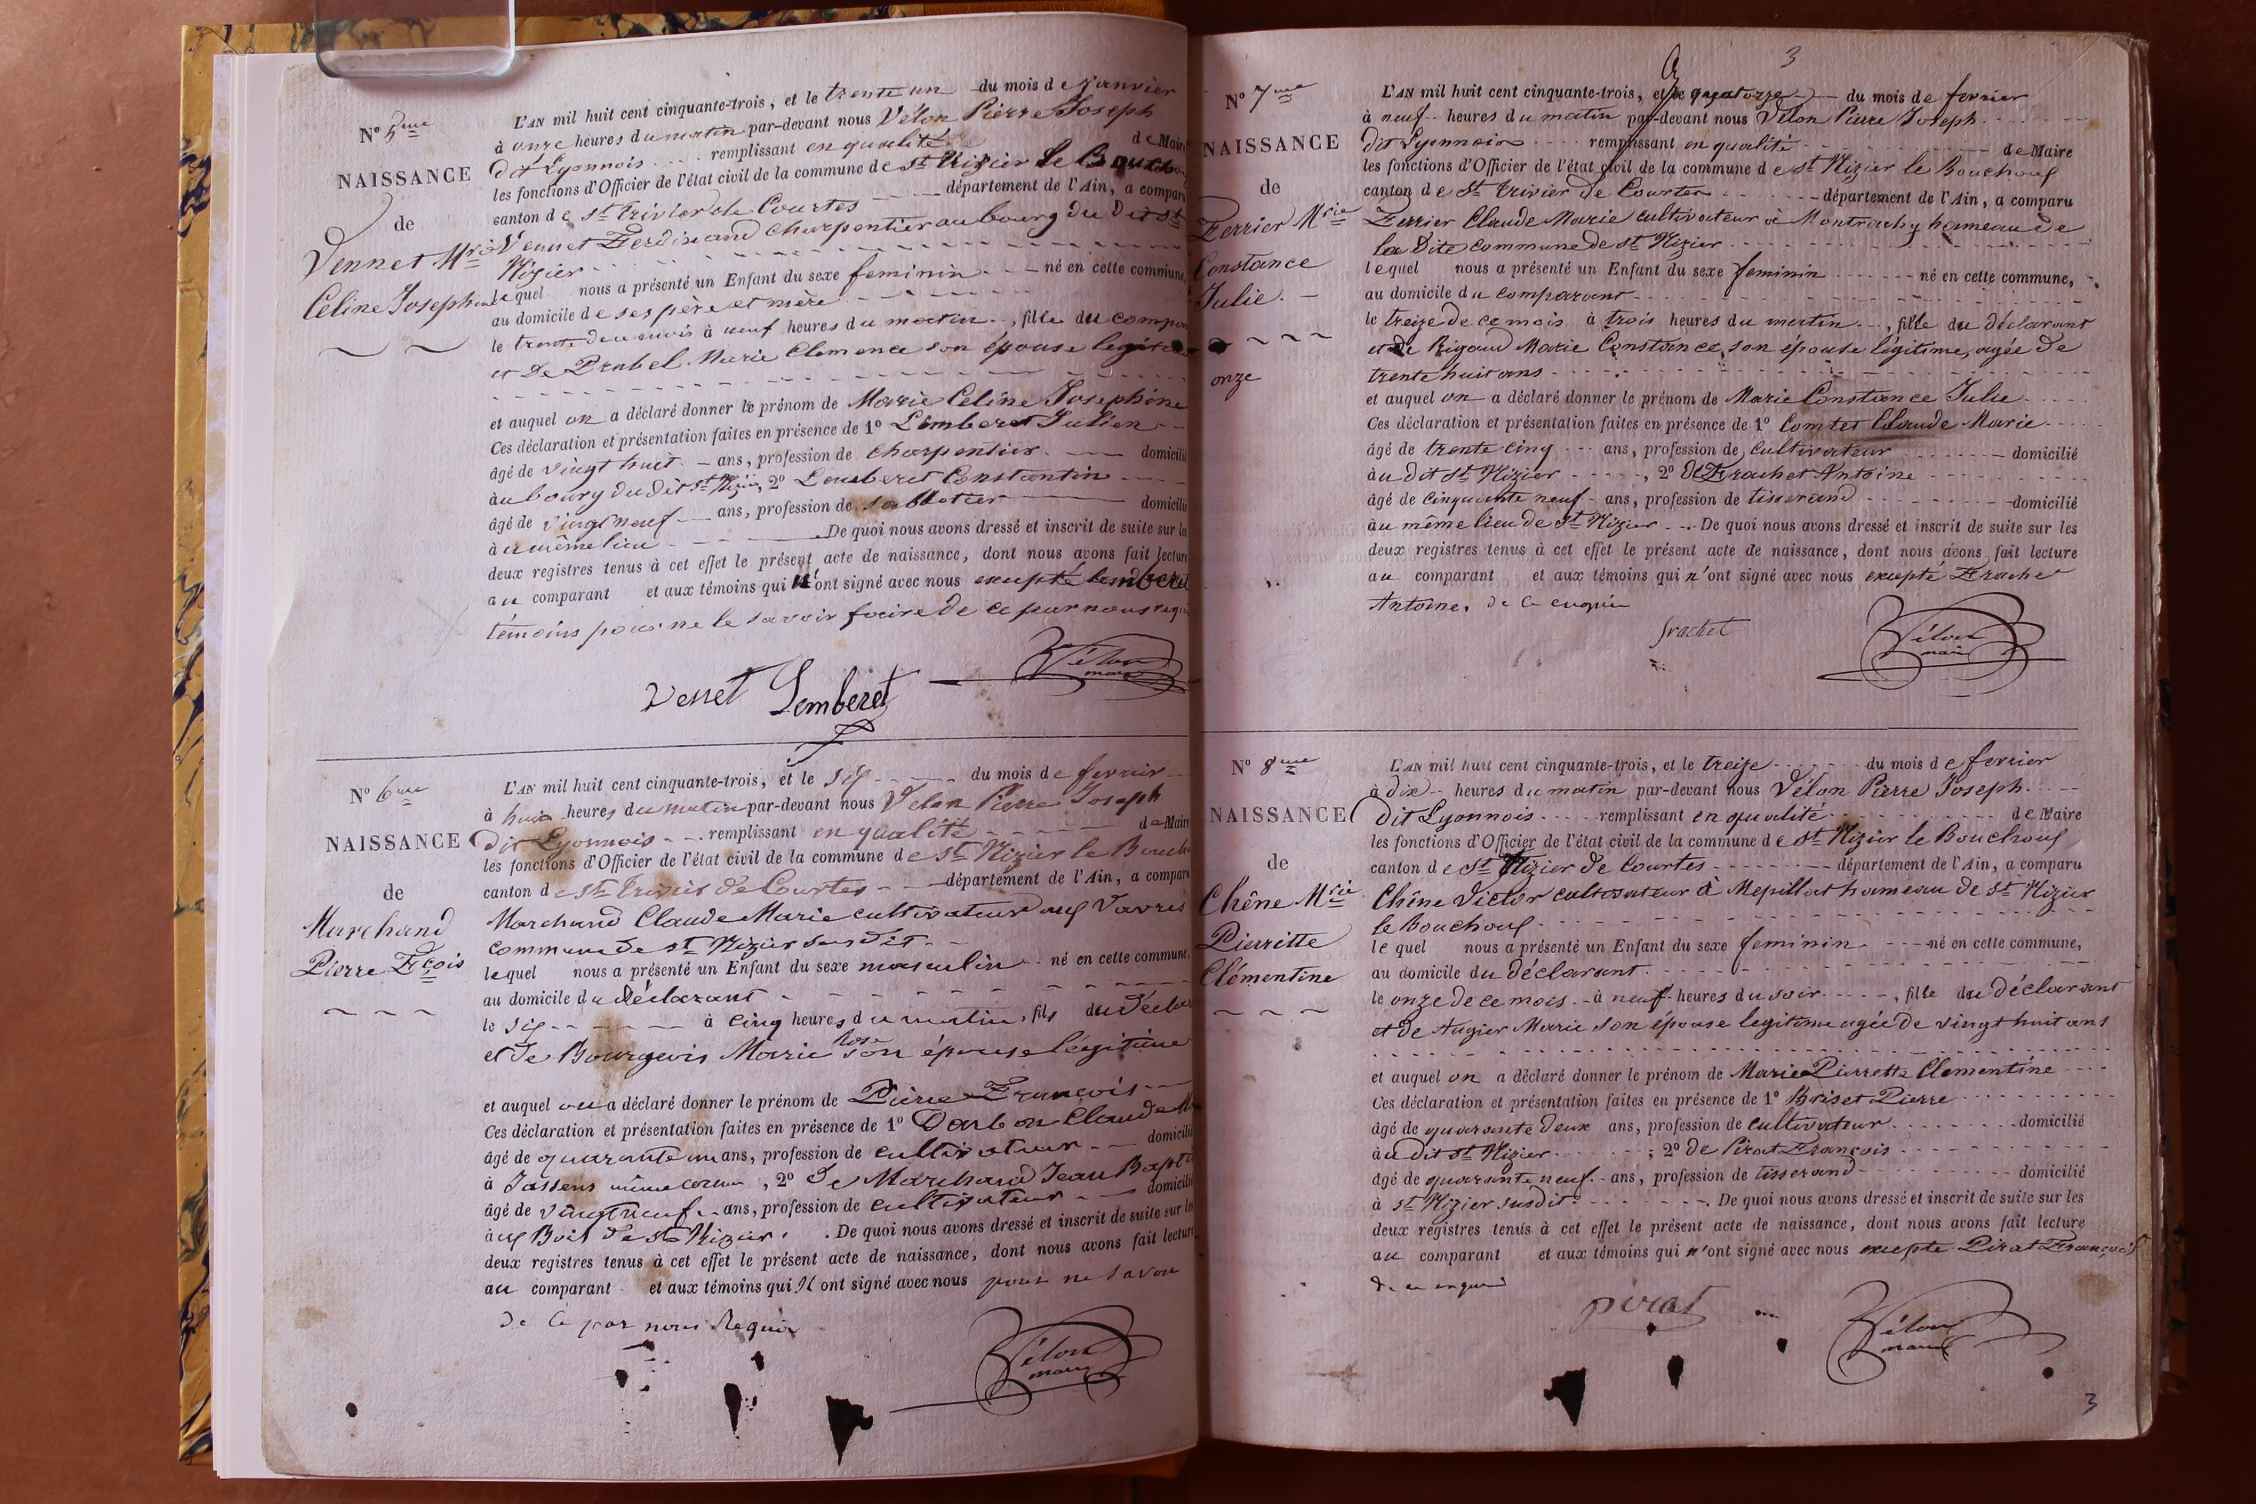 N° 5me
NAISSANCE
de
Vennet Mrie
Céline Josephine
L'AN mil huit cent cinquante-trois, et le trente un du mois de Janvier
à onze heures du matin par-devant nous Vélon Pierre Joseph
dit Lyonnois remplissant en qualité de Maire
les fonctions d'Officier de l'état civil de la commune de St Nizier le Bouchoux
canton de St Trivier de Courtes département de l'Ain, a comparu
Vennet Ferdinand charpentier au bourg du dit St
Nizier
lequel nous a présenté un Enfant du sexe feminin né en cette commune,
au domicile de ses père et mère
le trente du mois à neuf heures du matin, fille du compa
et de Prabel Marie Clemence son épouse legitime
et auquel on a déclaré donner le prénom de Marie Celine Josephine
Ces déclaration et présentation faites en présence de 1° Lemberet Julien
âgé de vingt huit ans, profession de charpentier domicilié
à u bourg du dit St Nizier, 2° Lemberet Constantin
âgé de vingt neuf ans, profession de sabotier domicilié
à u même lieu De quoi nous avons dressé et inscrit de suite sur les
deux registres tenus à cet effet le présent acte de naissance, dont nous avons fait lecture
au comparant et aux témoins qui n'ont signé avec nous excepté Lemberet
témoins pour ne le savoir faire de ce par nous requis
Vennet Lemberet Vélon
maire
N° 6me
NAISSANCE
de
Marchand
Pierre Fçois
L'AN mil huit cent cinquante-trois, et le six du mois de fevrier
à huit heures du matin par-devant nous Vélon Pierre Joseph
dit Lyonnois remplissant en qualité de Maire
les fonctions d'Officier de l'état civil de la commune de St Nizier le Bouch
canton de St Trivier de Courtes département de l'Ain, a comparu
Marchand Claude Marie cultivateur aux Vavres
commune de St Nizier sus dit
lequel nous a présenté un Enfant du sexe masculin né en cette commune,
au domicile du déclarant
le six à cinq heures du matin, fils du décla
et de Bourgeois Marie Rose son épouse légitime
et auquel on a déclaré donner le prénom de Pierre François
Ces déclaration et présentation faites en présence de 1° Darbon Claude M
âgé de quarante un ans, profession de cultivateur domicilié
à Tassens même comm, 2° de Marchand Jean Bapte
âgé de vingt neuf ans, profession de cultivateur domicilié
à ux Bois de St Nizier. De quoi nous avons dressé et inscrit de suite sur les
deux registres tenus à cet effet le présent acte de naissance, dont nous avons fait lecture
au comparant et aux témoins qui n ont signé avec nous pour ne savoir
de ce par nous Requis
Vélon
maire
3
N° 7me
NAISSANCE
de
Ferrier Mrie
Constance
Julie.
onze
L'AN mil huit cent cinquante-trois, et le quatorze du mois de fevrier
à neuf heures du matin par-devant nous Vélon Pierre Joseph
dit Lyonnois remplissant en qualité de Maire
les fonctions d'Officier de l'état civil de la commune de St Nizier le Bouchoux
canton de St Trivier de Courtes département de l'Ain, a comparu
Ferrier Claude Marie cultivateur à Montrachy hameau de
la dite commune de St Nizier
lequel nous a présenté un Enfant du sexe feminin né en cette commune,
au domicile du comparant
le treize de ce mois à trois heures du matin, fille du déclarant
et de Rigaud Marie Constance, son épouse légitime, agée de
trente huit ans
et auquel on a déclaré donner le prénom de Marie Constance Julie
Ces déclaration et présentation faites en présence de 1° Comtet Claude Marie
âgé de trente cinq ans, profession de cultivateur domicilié
à u dit St Nizier, 2° de Frachet Antoine
âgé de cinquante neuf ans, profession de tisserand domicilié
à u même lieu de St Nizier De quoi nous avons dressé et inscrit de suite sur les
deux registres tenus à cet effet le présent acte de naissance, dont nous avons fait lecture
au comparant et aux témoins qui n'ont signé avec nous excepté Frachet
Antoine, de ce enquis
frachet Vélon
maire
N° 8me
NAISSANCE
de
Chêne Mrie
Pierrette
Clémentine
L'AN mil huit cent cinquante-trois, et le treize du mois de fevrier
à dix heures du matin par-devant nous Vélon Pierre Joseph
dit Lyonnois remplissant en qualité de Maire
les fonctions d'Officier de l'état civil de la commune de St Nizier le Bouchoux
canton de St Nizier de Courtes département de l'Ain, a comparu
Chêne Victor cultivateur à Mepillat hameau de St Nizier
le Bouchoux
lequel nous a présenté un Enfant du sexe feminin né en cette commune,
au domicile du déclarant
le onze de ce mois à neuf heures du soir, fille du déclarant
et de Augier Marie son épouse legitime agée de vingt huit ans
et auquel on a déclaré donner le prénom de Marie Pierrette Clementine
Ces déclaration et présentation faites en présence de 1° Briset Pierre
âgé de quarante deux ans, profession de cultivateur domicilié
à u dit St Nizier; 2° de Pirat François
âgé de quarante neuf ans, profession de tisserand domicilié
à St Nizier susdit. De quoi nous avons dressé et inscrit de suite sur les
deux registres tenus à cet effet le présent acte de naissance, dont nous avons fait lecture
au comparant et aux témoins qui n'ont signé avec nous excepte Pirat François
de ce enquis
pirat Vélon
maire
3